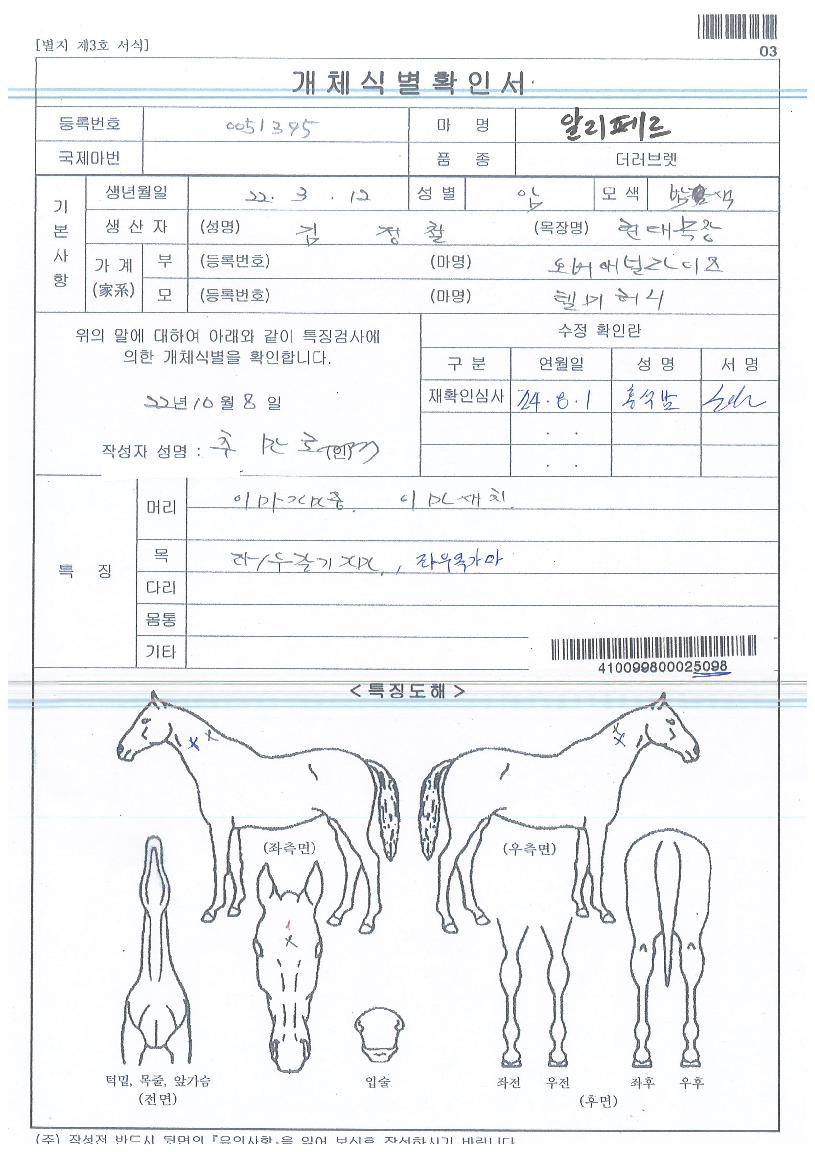 [별지 제3호 서식]
03
개체식별확인서
등록번호 0051395 마 명 알리페르
국제마번 품 종 더러브렛
기본사항
생년월일 22. 3. 12 성별 암 모색
생산자 (성명) 김 정 철 (목장명) 현대목장
가계 (家系) 부 (등록번호) (마명) 오버애널라이즈
모 (등록번호) (마명) 텔미허니
위의 말에 대하여 아래와 같이 특징검사에
의한 개체식별을 확인합니다.
22년 10월 8일
작성자 성명 : (인)
수정 확인란
구분 연월일 성명 서명
재확인심사 24.8.1 홍석남
. .
. .
특 징
머리
목 좌/두줄기
다리
몸통
기타
410099800025098
<특징도해>
(좌측면) (우측면)
턱밑, 목줄, 앞가슴 입술 좌전 우전 좌후 우후
(전면) (후면)
(주) 작성전 반드시 뒷면의 『유의사항』을 읽어 보신후 작성하시기 바랍니다